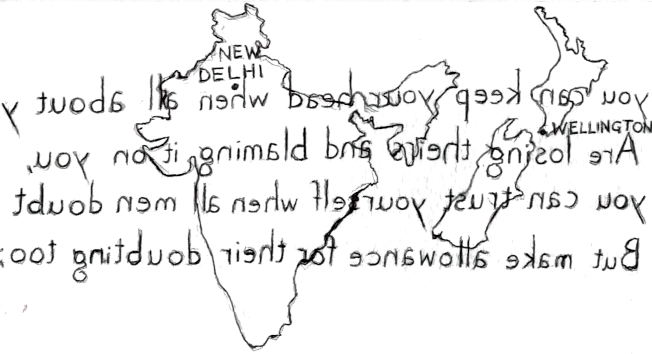 NEW
DELHI
you can keep your head when all about y
WELLINGTON
Are losing theirs and blaming it on you,
you can trust yourself when all men doubt
But make allowance for their doubting too;